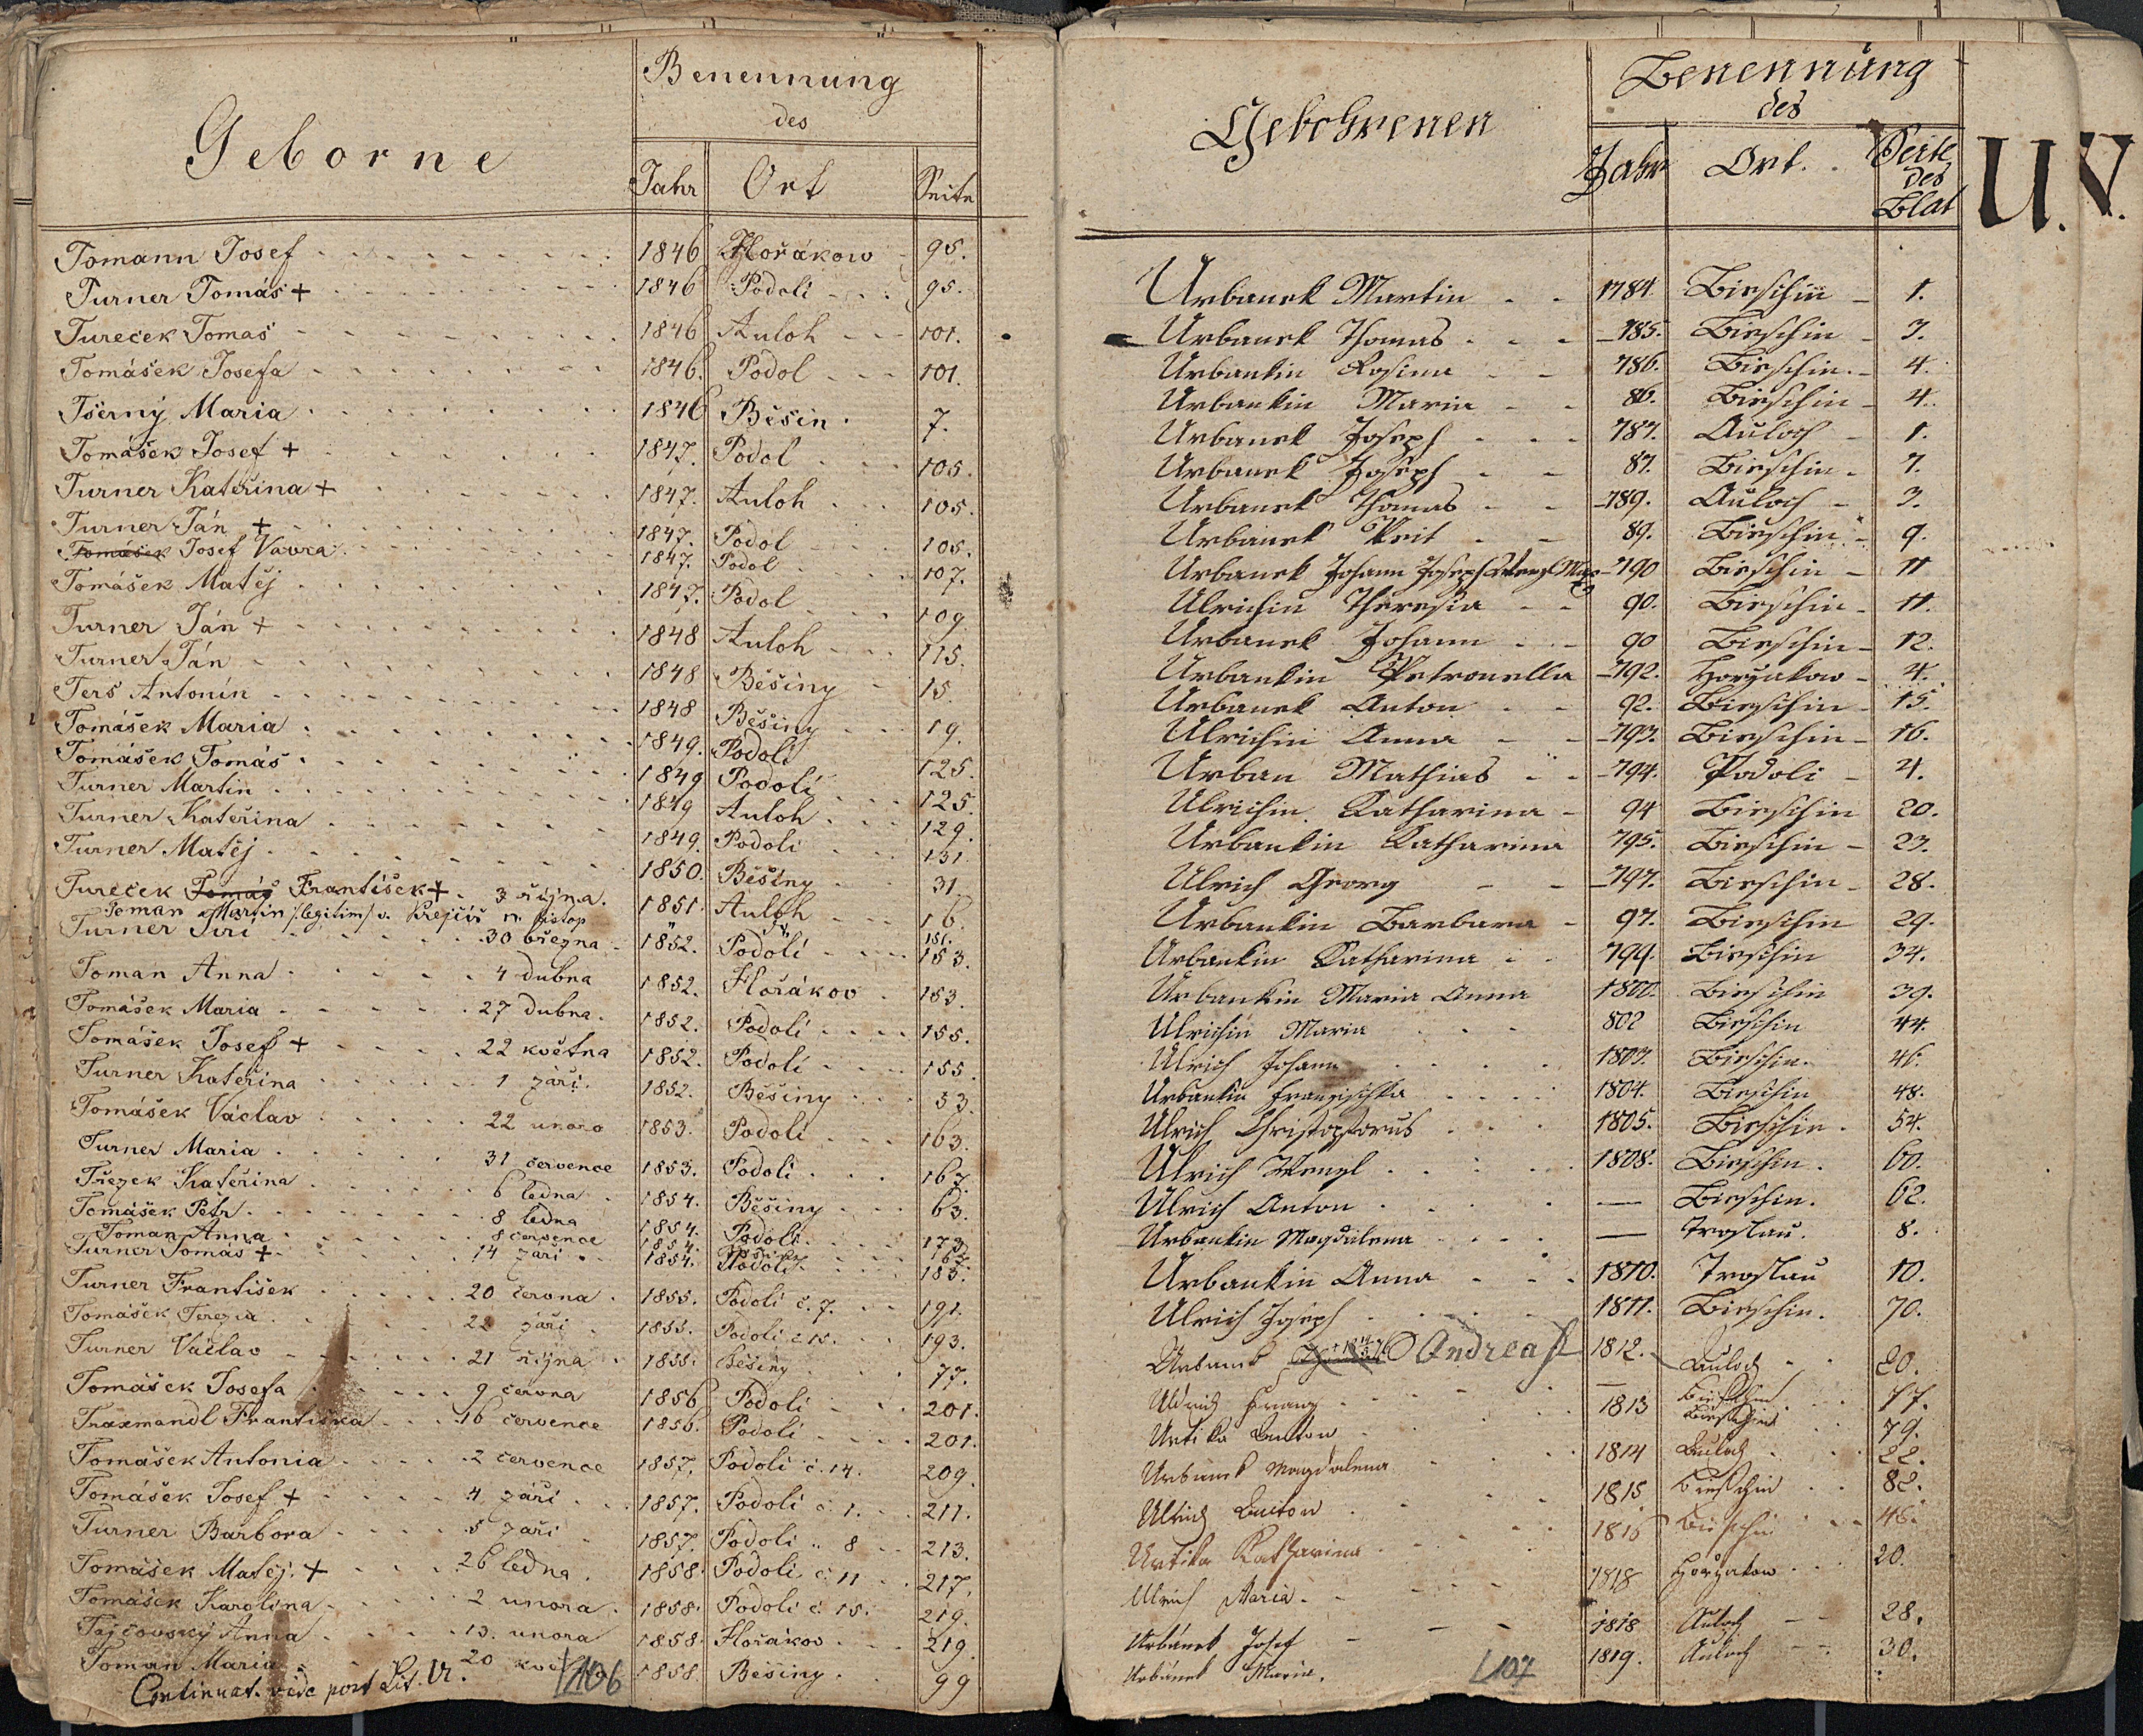 Geborne
Benennung
des
Jahr Ort Seite
Tomann Josef 1846 Hořákow 95.
Turner Tomáš + 1846 Podoli 95.
Tureček Tomaš 1846 Auloh 101.
Tomášek Josefa 1846. Podol 101.
Tšerný Maria 1846 Běšin 7.
Tomášek Josef + 1847. Podol 105.
Turner Kateřina + 1847. Auloh 105.
Turner Ján + 1847. Podol 105.
Tomášek Josef Vavra 1847. Podol 107.
Tomášek Matěj 1847. Podol 109
Turner Ján + 1848 Auloh 115.
Turner Ján 1848 Běšiny 15.
Terš Antonín 1848 Běšiny 19.
Tomášek Maria 1849. Podoli 125.
Tomášek Tomáš 1849 Podoli 125
Turner Martin 1849 Auloh 129.
Turner Kateřina 1849. Podoli 131.
Turner Matěj 1850. Běšiny 31
Tureček Tomáš František + 3 října. 1851. Auloh 16.
Toman Martin /: legitim :/ v. Krejčíř n. listop " 151.
Turner Jiri 30 března 1852. Podoli 153.
Toman Anna 4 dubna 1852. Hořákov 153.
Tomášek Maria 27 dubna. 1852. Podoli 155.
Tomášek Josef + 22 května 1852. Podoli 155
Turner Kateřina 1 záři. 1852. Běšiny 53.
Tomášek Václav 22 unora 1853. Podoli 163.
Turner Maria 31 července 1853. Podoli 167.
Třezek Kateřina 6 ledna 1854. Běšiny 63.
Tomášek Petr 8 ledna 1854. Podoli 173
Toman Anna 8 července 1854.
Turner Tomáš + 14 zari 1854. Podoli 185.
Turner František 20 června 1855. Podoli č. 7. 191.
Tomášek Terezia 22 záři 1855. Podoli č 15. 193.
Turner Václav 21 října 1855. Běšiny 77.
Tomášek Josefa 9 června 1856 Podoli 201.
Traxmandl Františka 16 července 1856. Podoli 201.
Tomášek Antonia 2 července 1857. Podoli č. 14. 209.
Tomášek Josef + 4 září 1857. Podoli č. 1. 211.
Turner Barbora 5 září 1857. Podoli " 8 213.
Tomášek Matěj + 26 ledna. 1858. Podoli č 11 217.
Tomášek Karolina 2 unora. 1858. Podoli č. 15. 219.
Tajčovský Anna 13. unora 1858. Hořákov 219.
Toman Maria 20 1858. Běšiny 99
Continuat. vide post Lit. U.
106
Gebohrenen
Benennung
des
Jahr Ort. Seite
des
Blat
U. V.
Urbanek Martin 1784. Bieschin 1.
Urbanek Thomas 785. Bieschin 3.
Urbankin Rosina 786. Bieschin. 4.
Urbankin Maria 86. Bieschin 4.
Urbanek Joseph 787. Auloch 1.
Urbanek Joseph 87. Bieschin 7.
Urbanek Thomas 789. Auloch 3.
Urbanek Veit 89. Bieschin 9.
Urbanek Johann Joseph Wenzl 790 Bieschin 11
Ulrichin Theresia 90. Bieschin 11.
Urbanek Johann 90 Bieschin 12.
Urbankin Petronella 792. Horzakow 4.
Urbanek Anton 92. Bieschin 15.
Ulrichin Anna 793. Bieschin 16.
Urban Mathias 794. Podoli 4.
Ulrichin Katharina 94 Bieschin 20.
Urbankin Katharina 795. Bieschin 23.
Ulrich Georg 797. Bieschin 28.
Urbankin Barbara 97. Bieschin 29.
Urbankin Katharina 799. Bieschin 34.
Urbankin Maria Anna 1800. Bieschin 39.
Ulrichin Maria 802 Bieschin 44.
Ulrich Johann 1803. Bieschin. 46.
Urbankin Francischka 1804. Bieschin 48.
Ulrich Christophorus 1805. Bieschin. 54.
Ulrich Wenzl 1808. Bieschin. 60.
Ulrich Anton — Bieschin. 62.
Urbankin Magdalena — Troslau. 8.
Urbankin Anna 1810. Troslau 10.
Ulrich Joseph 1811. Bieschin. 70.
Urbanek Andreas 1812. Auloch 20.
Uldrich Franz — Bieschin 77.
Urtika Anton 1813 Bieschin 79.
Urbanek Magdalena 1814 Auloch 22.
Ulrich Anton 1815 Bieschin 82.
Urtika Katharina 1816 Bieschin
Ulrich Maria. 1818 Horzakow 20.
Urbánek Josef 1818 Auloch 28.
Urbánek Maria. 1819. Auloch 30.
107